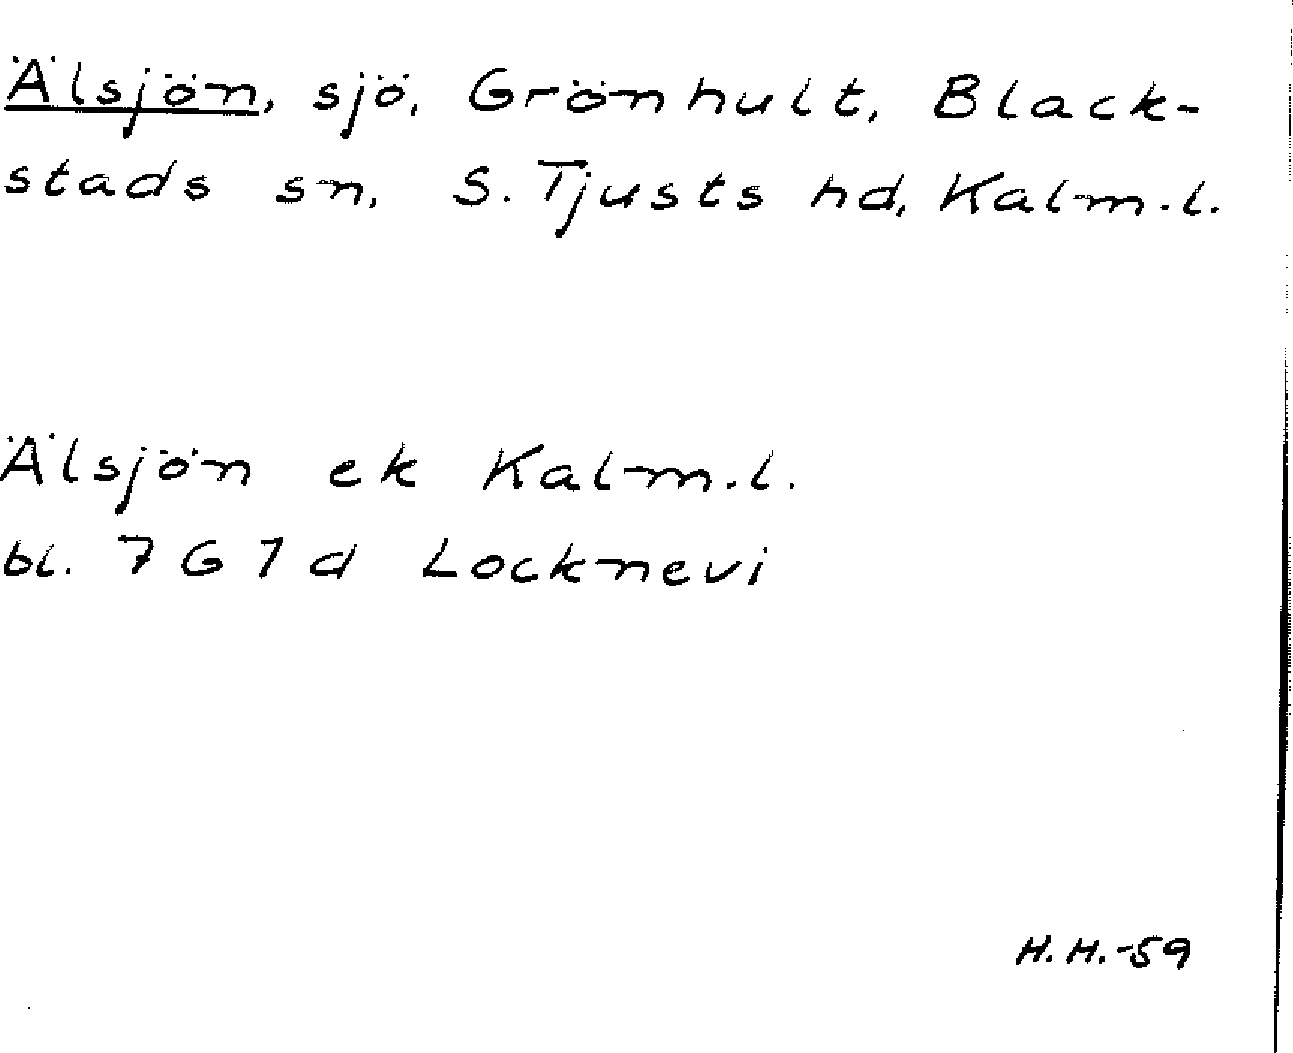 Älsjön, sjö, Grönhult, Black-
stads sn, S. Tjusts hd, Kalm.l.
Älsjön ek Kalm.l.
bl. 7 G 7 d Locknevi
H.H.-59